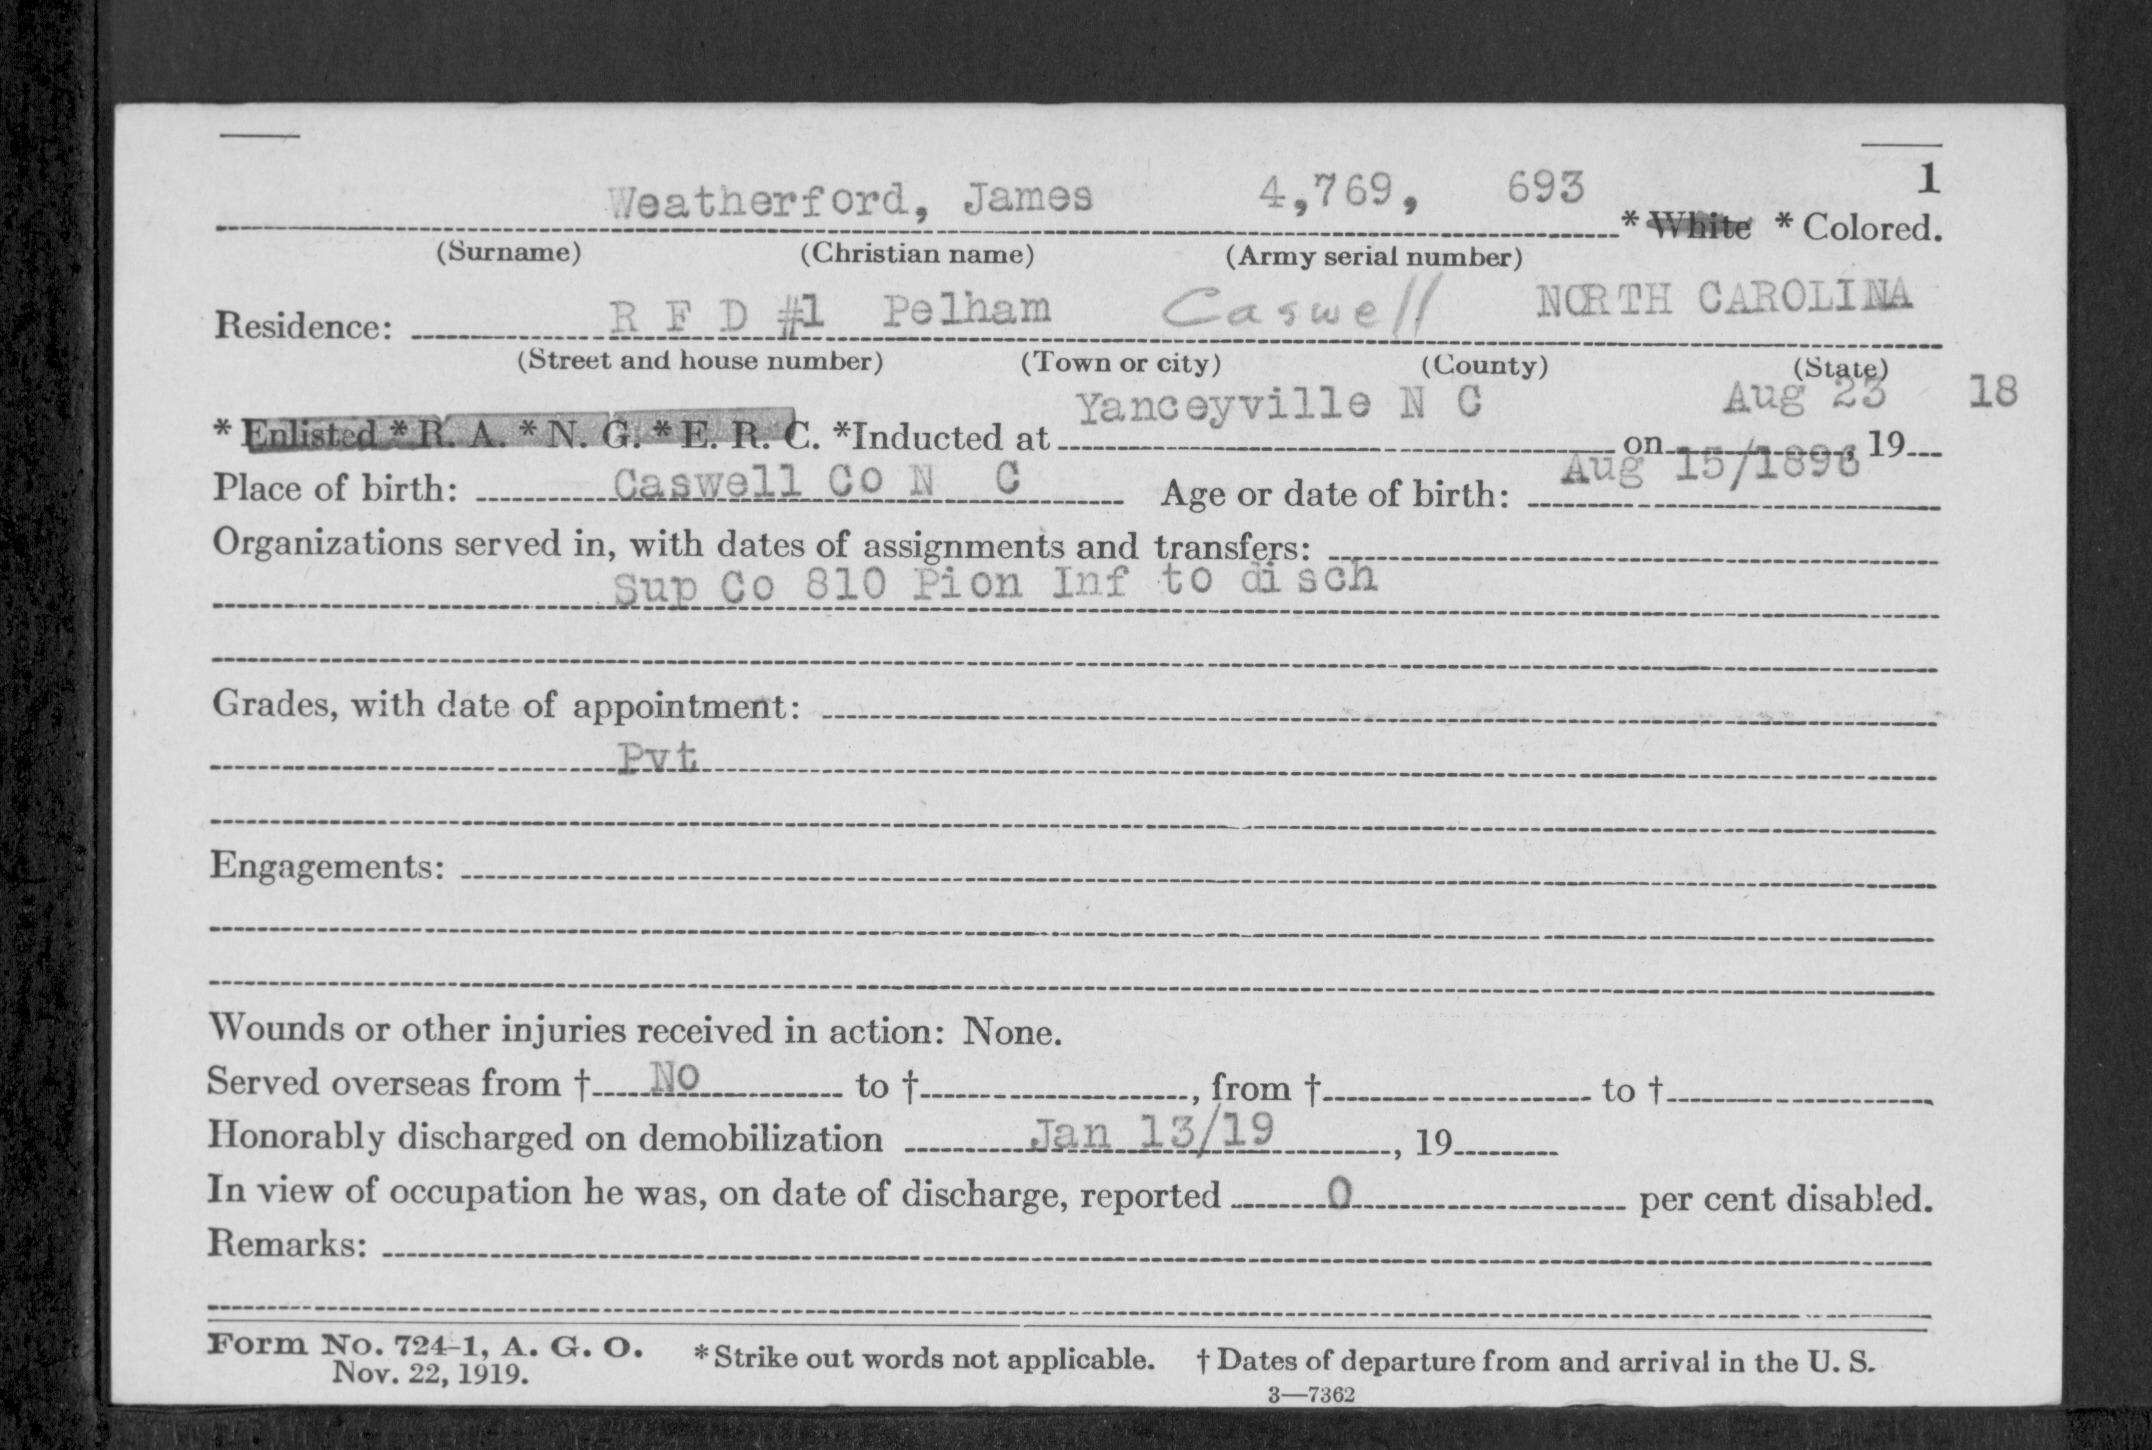 1
Weatherford, James 4,769, 693 * White * Colored.
(Surname) (Christian name) (Army serial number)
Residence: R F D #1 Pelham Caswell NORTH CAROLINA
(Street and house number) (Town or city) (County) (State)
* Enlisted * R. A. * N. G. * E. R. C. *Inducted at Yanceyville N C on Aug 23, 19 18
Place of birth: Caswell Co N C Age or date of birth: Aug 15/1896
Organizations served in, with dates of assignments and transfers:
Sup Co 810 Pion Inf to disch
Grades, with date of appointment:
Pvt
Engagements:
Wounds or other injuries received in action: None.
Served overseas from † No to †, from † to †
Honorably discharged on demobilization Jan 13/19, 19
In view of occupation he was, on date of discharge, reported 0 per cent disabled.
Remarks:
Form No. 724-1, A. G. O. *Strike out words not applicable. † Dates of departure from and arrival in the U. S.
Nov. 22, 1919.
3—7362